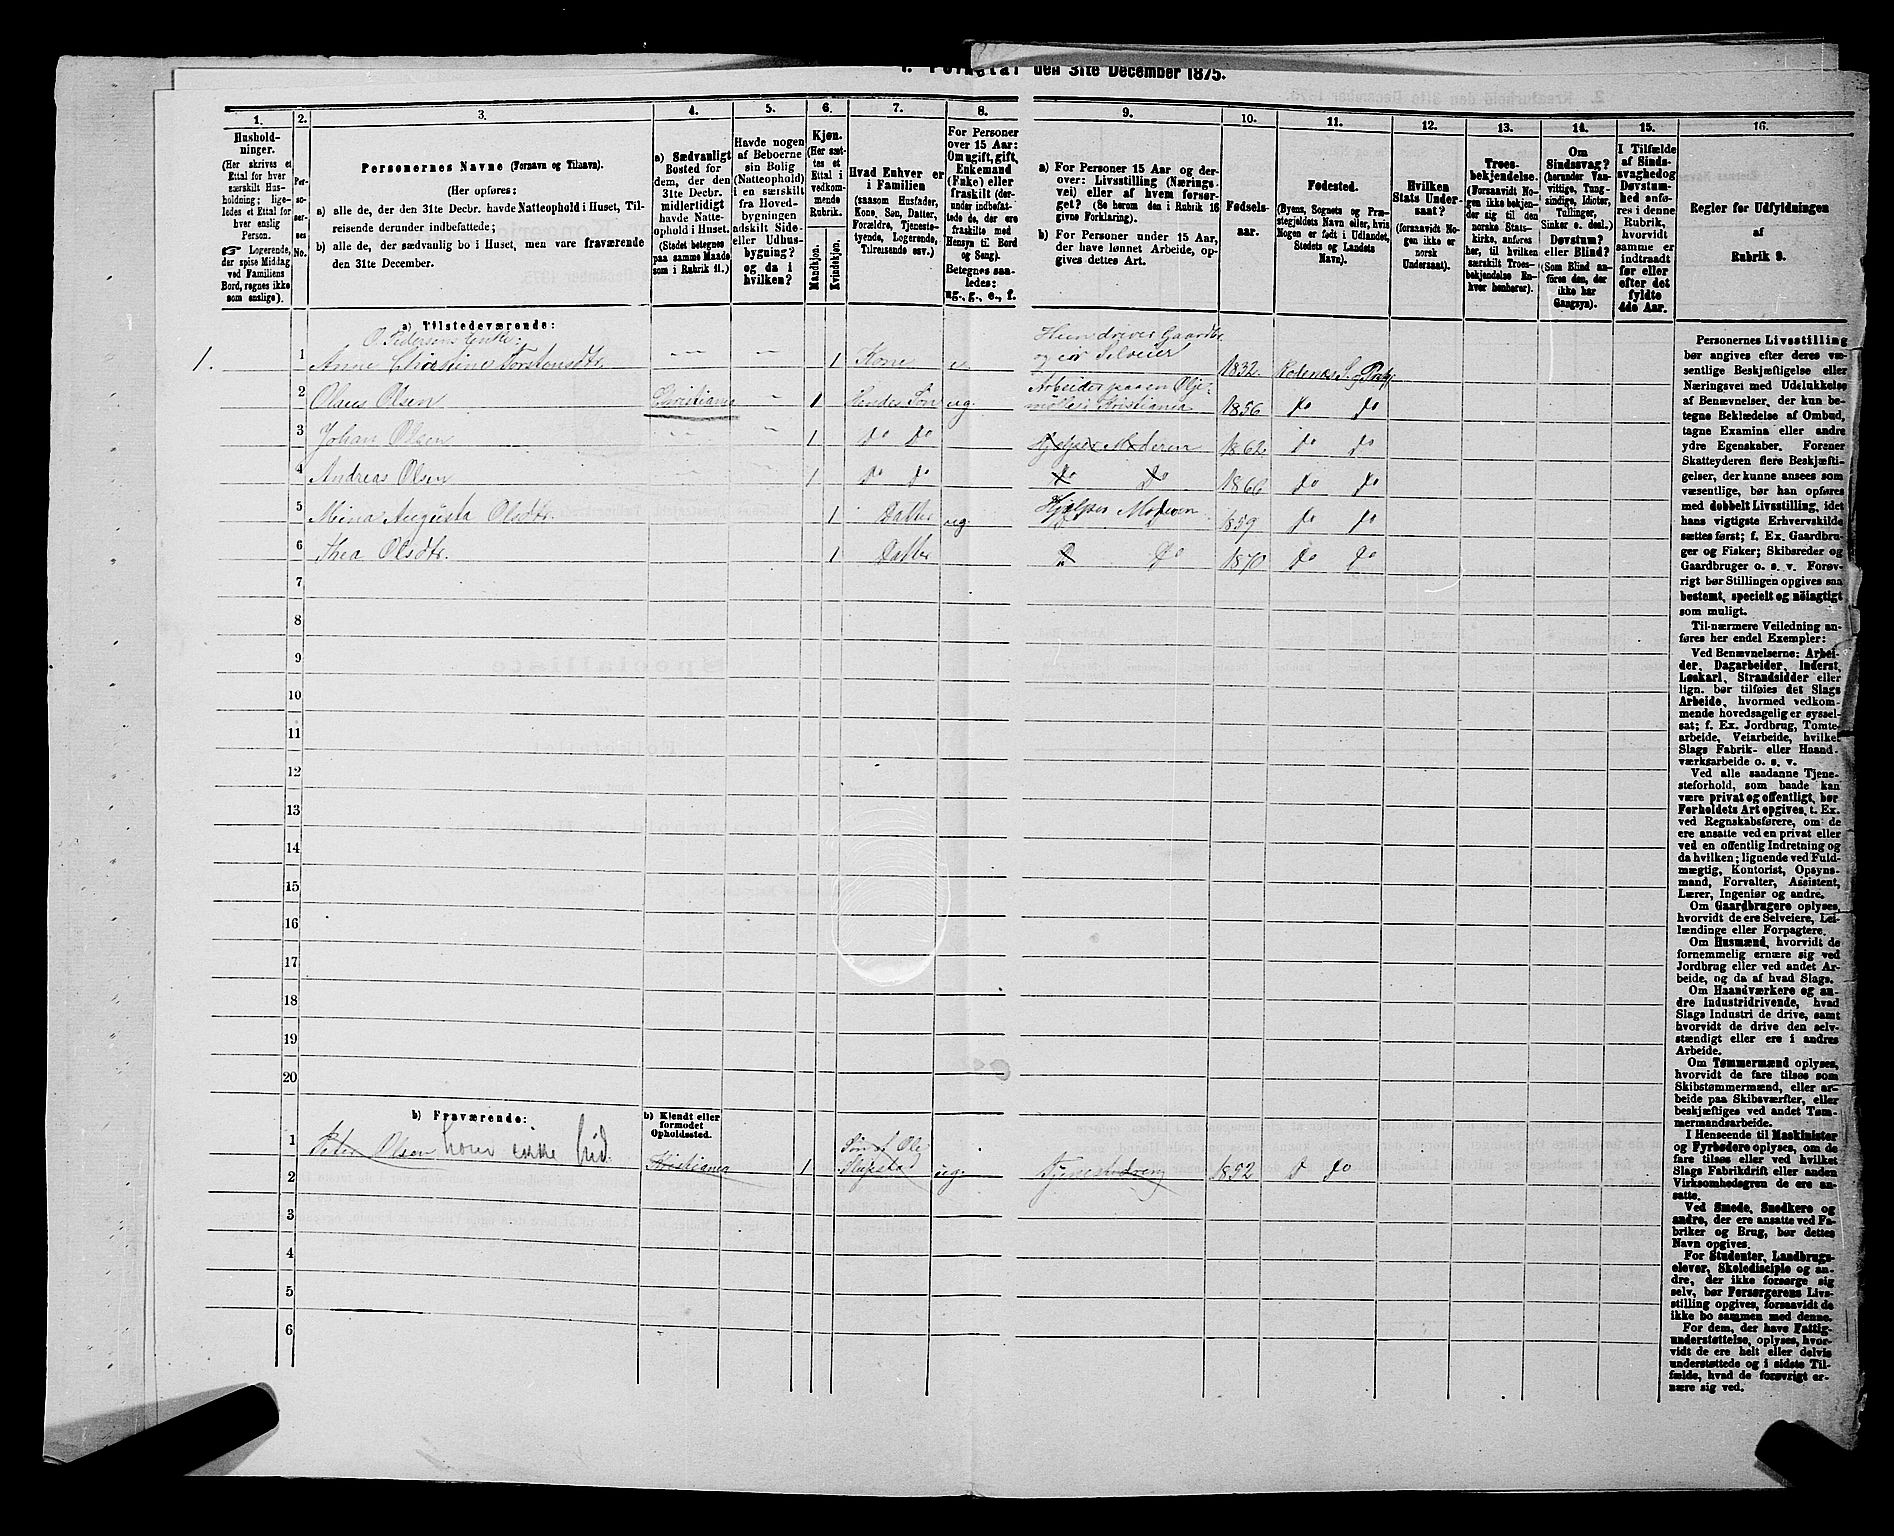 den 31te December 1875.
1. 2. 3. 4. 5. 6. 7. 8. 9. 10. 11. 12. 13. 14. 15. 16.
Hushold-
ninger.
(Her skrives et
Ettal for hver
særskilt Hus-
holdning; lige-
ledes et Ettal for
hver enslig
Person.
☞ Logerende,
der spise Middag
ved Familiens
Bord, regnes ikke
som enslige).
Per-
so-
ner-
nes
No.
Personernes Navne (Fornavn og Tilnavn).
(Her opføres:
a) alle de, der den 31te Decbr. havde Natteophold i Huset, Til-
reisende derunder indbefattede;
b) alle de, der sædvanlig bo i Huset, men vare fraværende
den 31te December.
a) Sædvanligt
Bosted for
dem, der den
31te Decbr.
midlertidigt
havde Natte-
ophold i Huset.
(Stedet betegnes
paa samme Maade
som i Rubrik 11.)
Havde nogen
af Beboerne
sin Bolig
(Natteophold)
i en særskilt
fra Hoved-
bygningen
adskilt Side-
eller Udhus-
bygning?
og da i
hvilken?
Kjøn.
(Her sæt-
tes et
Ettal i
vedkom-
mende
Rubrik.
Mandkjøn.
Kvindekjøn.
Hvad Enhver er
i Familien
(saasom Husfader,
Kone, Søn, Datter,
Forældre, Tjeneste-
tyende, Logerende,
Tilreisende osv.)
For Personer
over 15 Aar:
Om ugift, gift,
Enkemand
(Enke) eller
fraskilt (der-
under indbefat-
tede de, der ere
fraskilte med
Hensyn til Bord
og Seng).
Betegnes saa-
ledes:
ug., g., e., f.
a) For Personer 15 Aar og der-
over: Livsstilling (Nærings-
vei) eller af hvem forsør-
get? (Se herom den i Rubrik 16
givne Forklaring).
b) For Personer under 15 Aar,
der have lønnet Arbeide, op-
gives dettes Art.
Fødsels-
aar.
Fødested.
(Byens, Sognets og Præ-
stegjeldets Navn eller, hvis
Nogen er født i Udlandet,
Stedets og Landets
Navn).
Hvilken
Stats Under-
saat?
(forsaavidt No-
gen ikke er
norsk
Undersaat).
Troes-
bekjendelse.
(Forsaavidt No-
gen ikke bekjen-
der sig til den
norske Stats-
kirke, anføres
her, til hvilken
særskilt Troes-
bekjendelse En-
hver henhører).
Om
Sindssvag?
(herunder Van-
vittige, Tung-
sindige, Idioter,
Tullinger,
Sinker o. desl.)
Døvstum?
eller Blind?
(Som Blind an-
føres den, der
ikke har
Gangsyn).
I Tilfælde
af Sinds-
svaghed og
Døvstum-
hed anfø-
res i denne
Rubrik,
hvorvidt
samme er
indtraadt
før eller
efter det
fyldte
4de Aar.
Regler for Udfyldningen
af
Rubrik 9.
a) Tilstedeværende:
O. Pedersens Enke:
1. 1 Anne Christine Torstensdtr. 1 Kone e. Hun driver Gaardbr.
og er Selveier 1832.
2 Olaus Olsen Christiania 1 Hendes Søn ug Arbeider paa en Olje-
mølle i Kristiania 1856 do do
3 Johan Olsen 1 do do Hjelper Moderen 1862 do do
4 Andreas Olsen 1 do do do do 1866 do do
5 Mina Augusta Olsdtr. 1 Datter ug Hjelper Moderen 1859 do do
6 Thea Olsdtr. 1 Datter do do 1870 do do
7
8
9
10
11
12
13
14
15
16
17
18
19
20
b) Fraværende:
b) Kjendt eller
formodet
Opholdssted.
1 Peter Olsen Kristiania 1 Søn af Ole ug. 1852 do do
2
3
4
5
6
Personernes Livsstilling
bør angives efter deres væ-
sentlige Beskjæftigelse eller
Næringsvei med Udelukkelse
af Benævnelser, der kun be-
tegne Beklædelse af Ombud,
tagne Examina eller andre
ydre Egenskaber. Forener
Skatteyderen flere Beskjæfti-
gelser, der kunne ansees som
væsentlige, bør han opføres
med dobbelt Livsstilling, idet
hans vigtigste Erhvervskilde
sættes først; f. Ex. Gaardbru-
ger og Fisker; Skibsreder og
Gaardbruger o. s. v. Forøv-
rigt bør Stillingen opgives saa
bestemt, specielt og nöiagtigt
som muligt.
Til nærmere Veiledning an-
føres her endel Exempler:
Ved Benævnelserne: Arbei-
der, Dagarbeider, Inderst,
Løskarl, Strandsidder eller
lign. bør tilføies det Slags
Arbeide, hvormed vedkom-
mende hovedsagelig er syssel-
sat; f. Ex. Jordbrug, Tomte-
arbeide, Veiarbeide, hvilket
Slags Fabrik- eller Haand-
værksarbeide o. s. v.
Ved alle saadanne Tjene-
steforhold, som baade kan
være privat og offentligt, bør
Forholdets Art opgives, t. Ex.
ved Regnskabsførere, om de
ere ansatte ved en privat eller
ved en offentlig Indretning og
da hvilken; lignende ved Fuld-
mægtig, Kontorist, Opsyns-
mand, Forvalter, Assistent,
Lærer, Ingeniør og andre.
Om Gaardbrugere oplyses,
hvorvidt de ere Selveiere, Lei-
lændinge eller Forpagtere.
Om Husmænd, hvorvidt de
fornemmelig ernære sig ved
Jordbrug eller ved andet Ar-
beide, og da af hvad Slags.
Om Haandværkere og an-
dre Industridrivende, hvad
Slags Industri de drive, samt
hvorvidt de drive den selv-
stændigt eller ere i andres
Arbeide.
Om Tømmermænd oplyses,
hvorvidt de fare tilsøs som
Skibstømmermænd, eller ar-
beide paa Skibsværfter, eller
beskjæftiges ved andet Tøm-
mermandsarbeide.
I Henseende til Maskinister
og Fyrbødere oplyses, om de
fare tilsøs eller ved hvilket
Slags Fabrikdrift eller anden
Virksomhedsgren de ere an-
satte.
Ved Smede, Snedkere og
andre, der ere ansatte ved Fa-
briker og Brug, bør dettes
Navn opgives.
For Studenter, Landbrugs-
elever, Skoledisciple og an-
dre, der ikke forsørge sig
selv, bør Forsørgerens Livs-
stilling opgives, forsaavidt de
ikke bo sammen med denne.
For dem, der have Fattig-
understøttelse, oplyses, hvor-
vidt de ere helt eller delvis
understøttede og i sidste Til-
fælde, hvad de forøvrigt er-
nære sig ved.